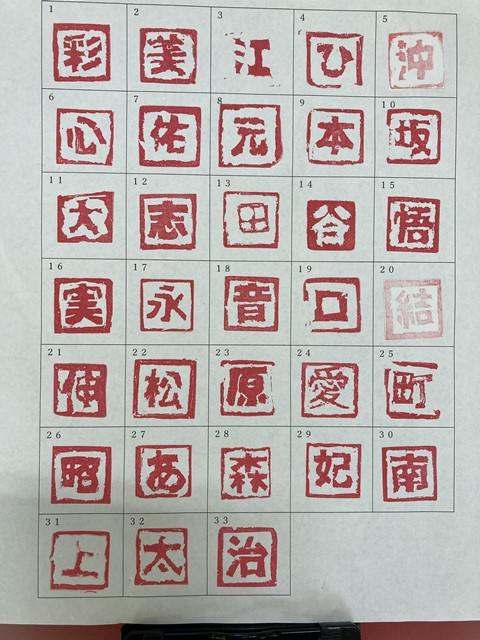 1 2 3 4 5
彩 美 江 ひ 沖
6 7 8 9 10
心 佑 元 本 坂
11 12 13 14 15
大 志 田 谷 悟
16 17 18 19 20
実 永 音 口 結
21 22 23 24 25
伸 松 原 愛 町
26 27 28 29 30
昭 あ 森 妃 南
31 32 33
上 太 治